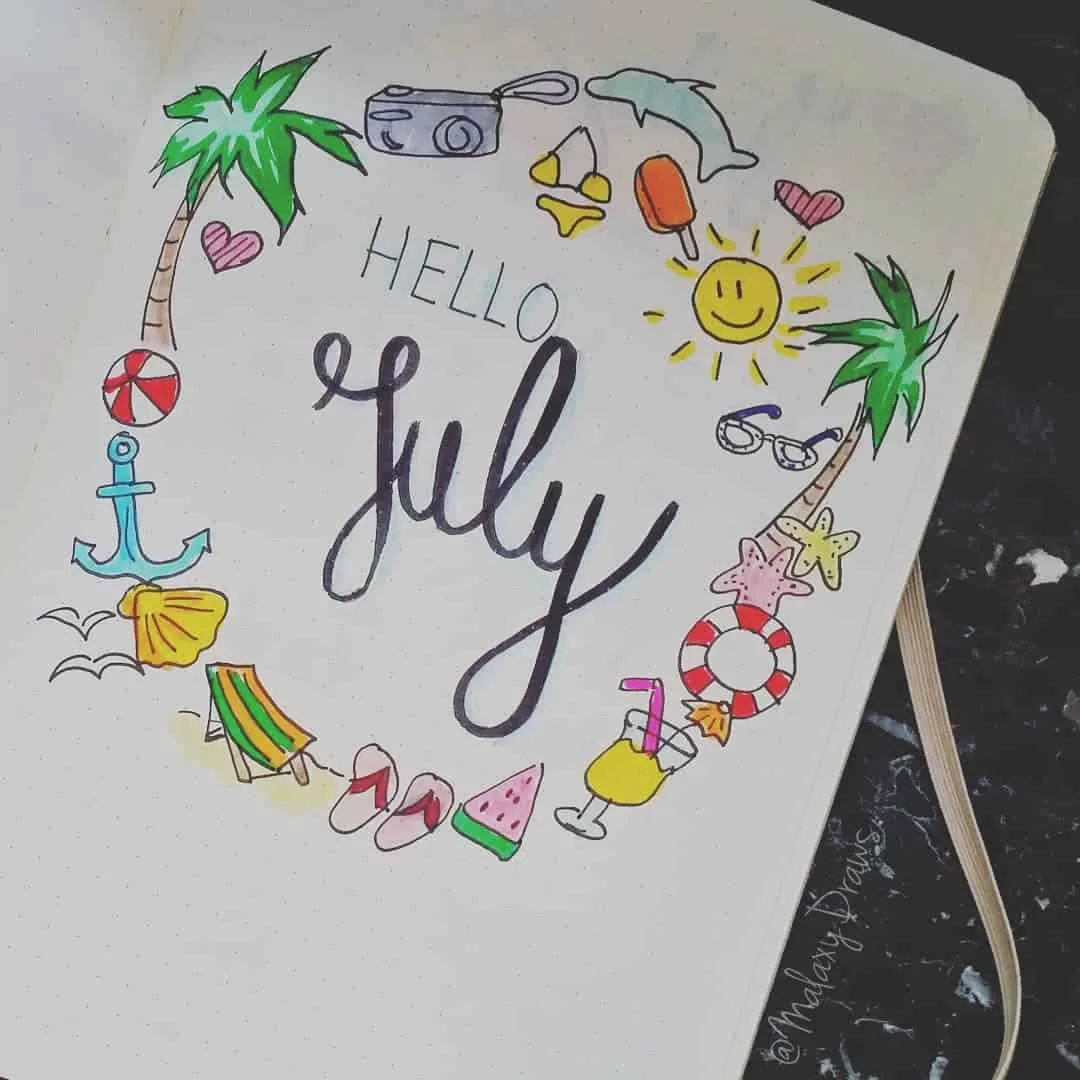 HELLO
July
@Malaxy Draws